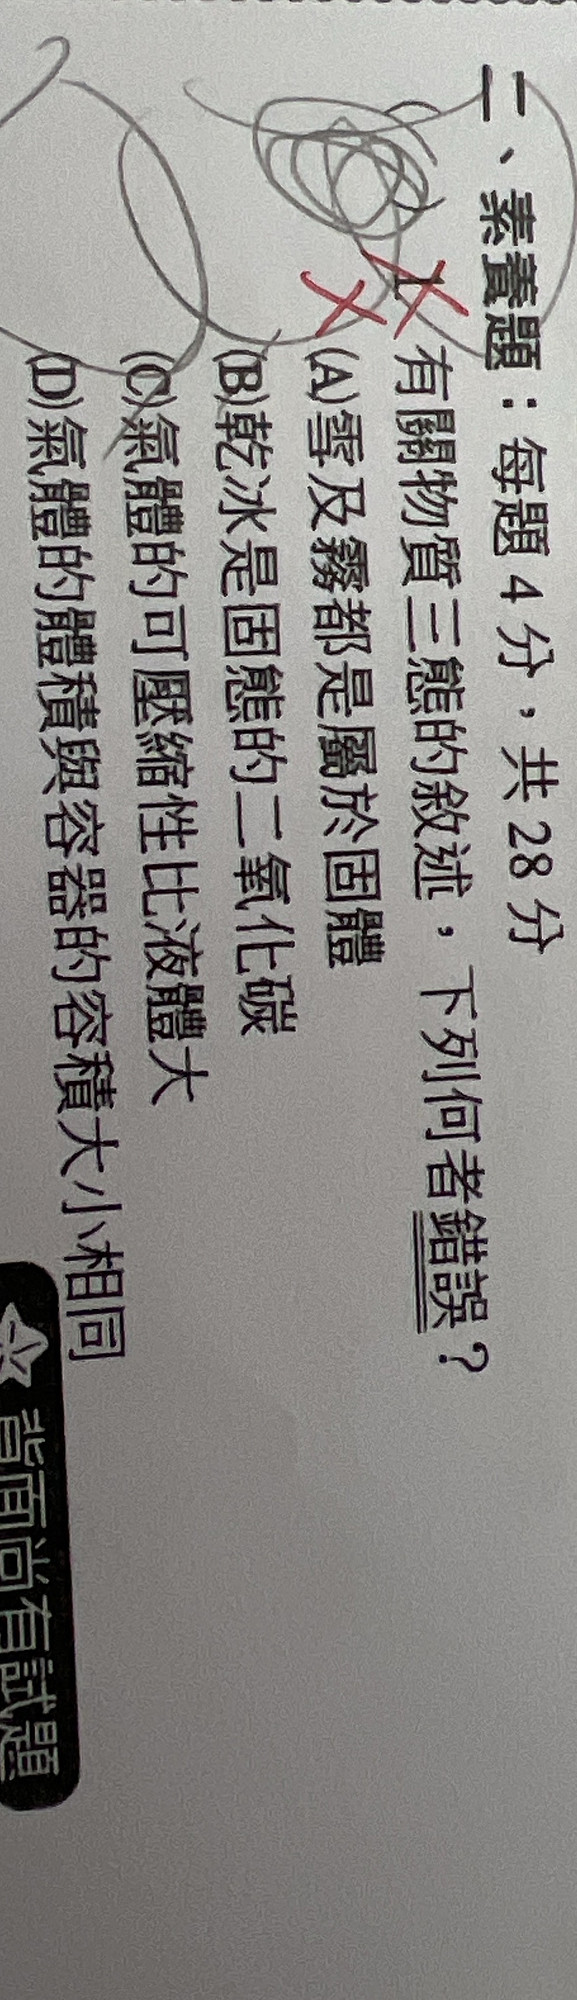 二、素養題：每題4分，共28分
1. 有關物質三態的敘述，下列何者錯誤？
(A)雪及霧都是屬於固體
(B)乾冰是固態的二氧化碳
(C)氣體的可壓縮性比液體大
(D)氣體的體積與容器的容積大小相同
背面尚有試題